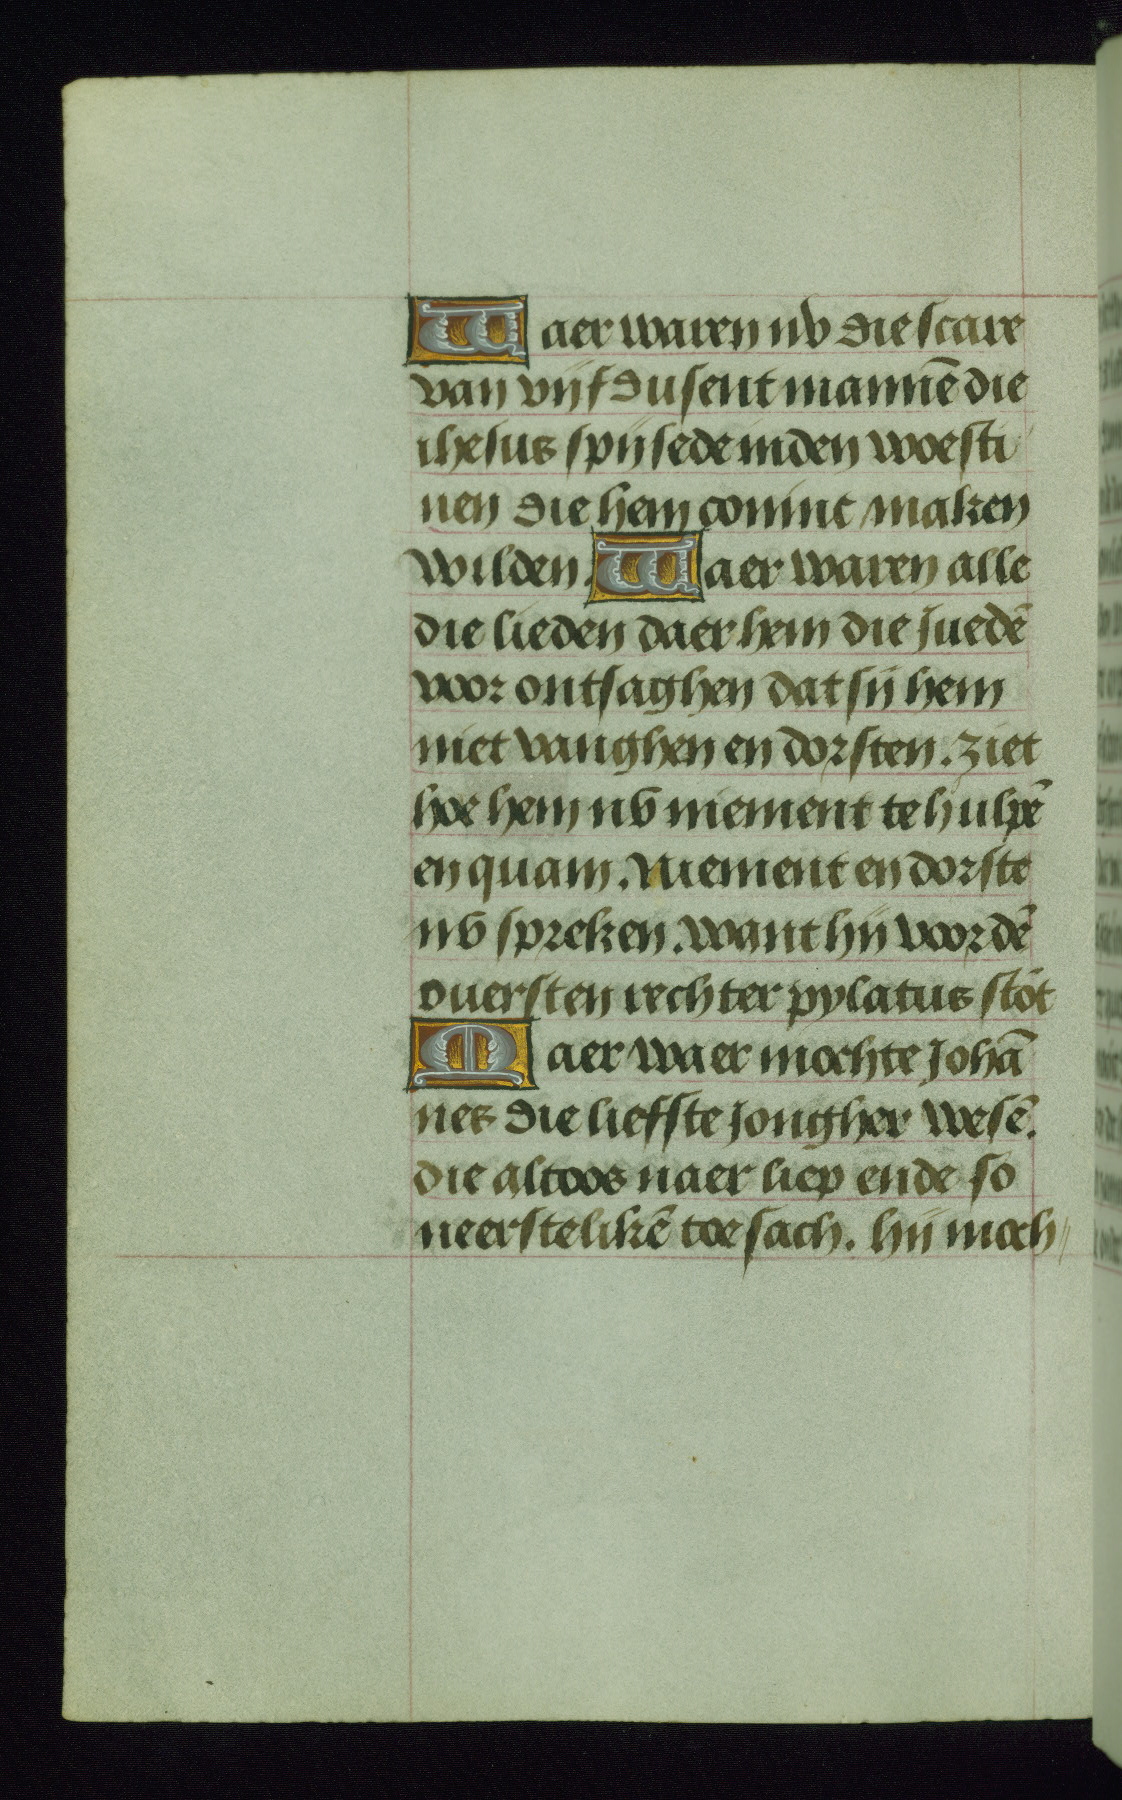 Waer waren nv die scare
van vijf dusent mannē die
ihesus spijsede inden woesti
nen die hem coninc maken
wilden. Waer waren alle
die lieden daer hem die juedē
voor ontsaghen dat sij hem
niet vanghen en dorsten. ziet
hoe hem nv niement te hulpē
en quam. Niement en dorste
nv spreken. want hij voor dē
ouersten rechter pylatus stōt
Maer waer mochte johā
nes die liefste jongher wesē.
die altoos naer liep ende so
neerstelikē toe sach. hij moch